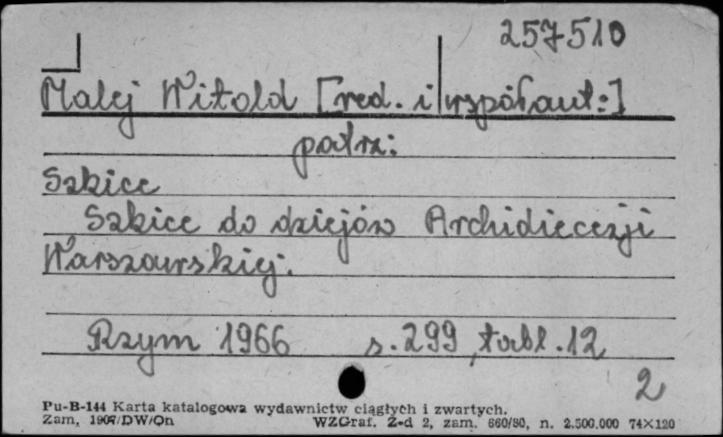 257510
Malej Witold [red. i współaut:]
patrz:
Szkice
Szkice do dziejów Archidiecezji
Warszawskiej.
Rzym 1966 s. 299, tabl. 12
2
Pu-B-144 Karta katalogowa wydawnictw ciągłych i zwartych.
Zam, 1907/DW/On WZGraf. Z-d 2, zam. 660/80, n. 2.500.000 74X120